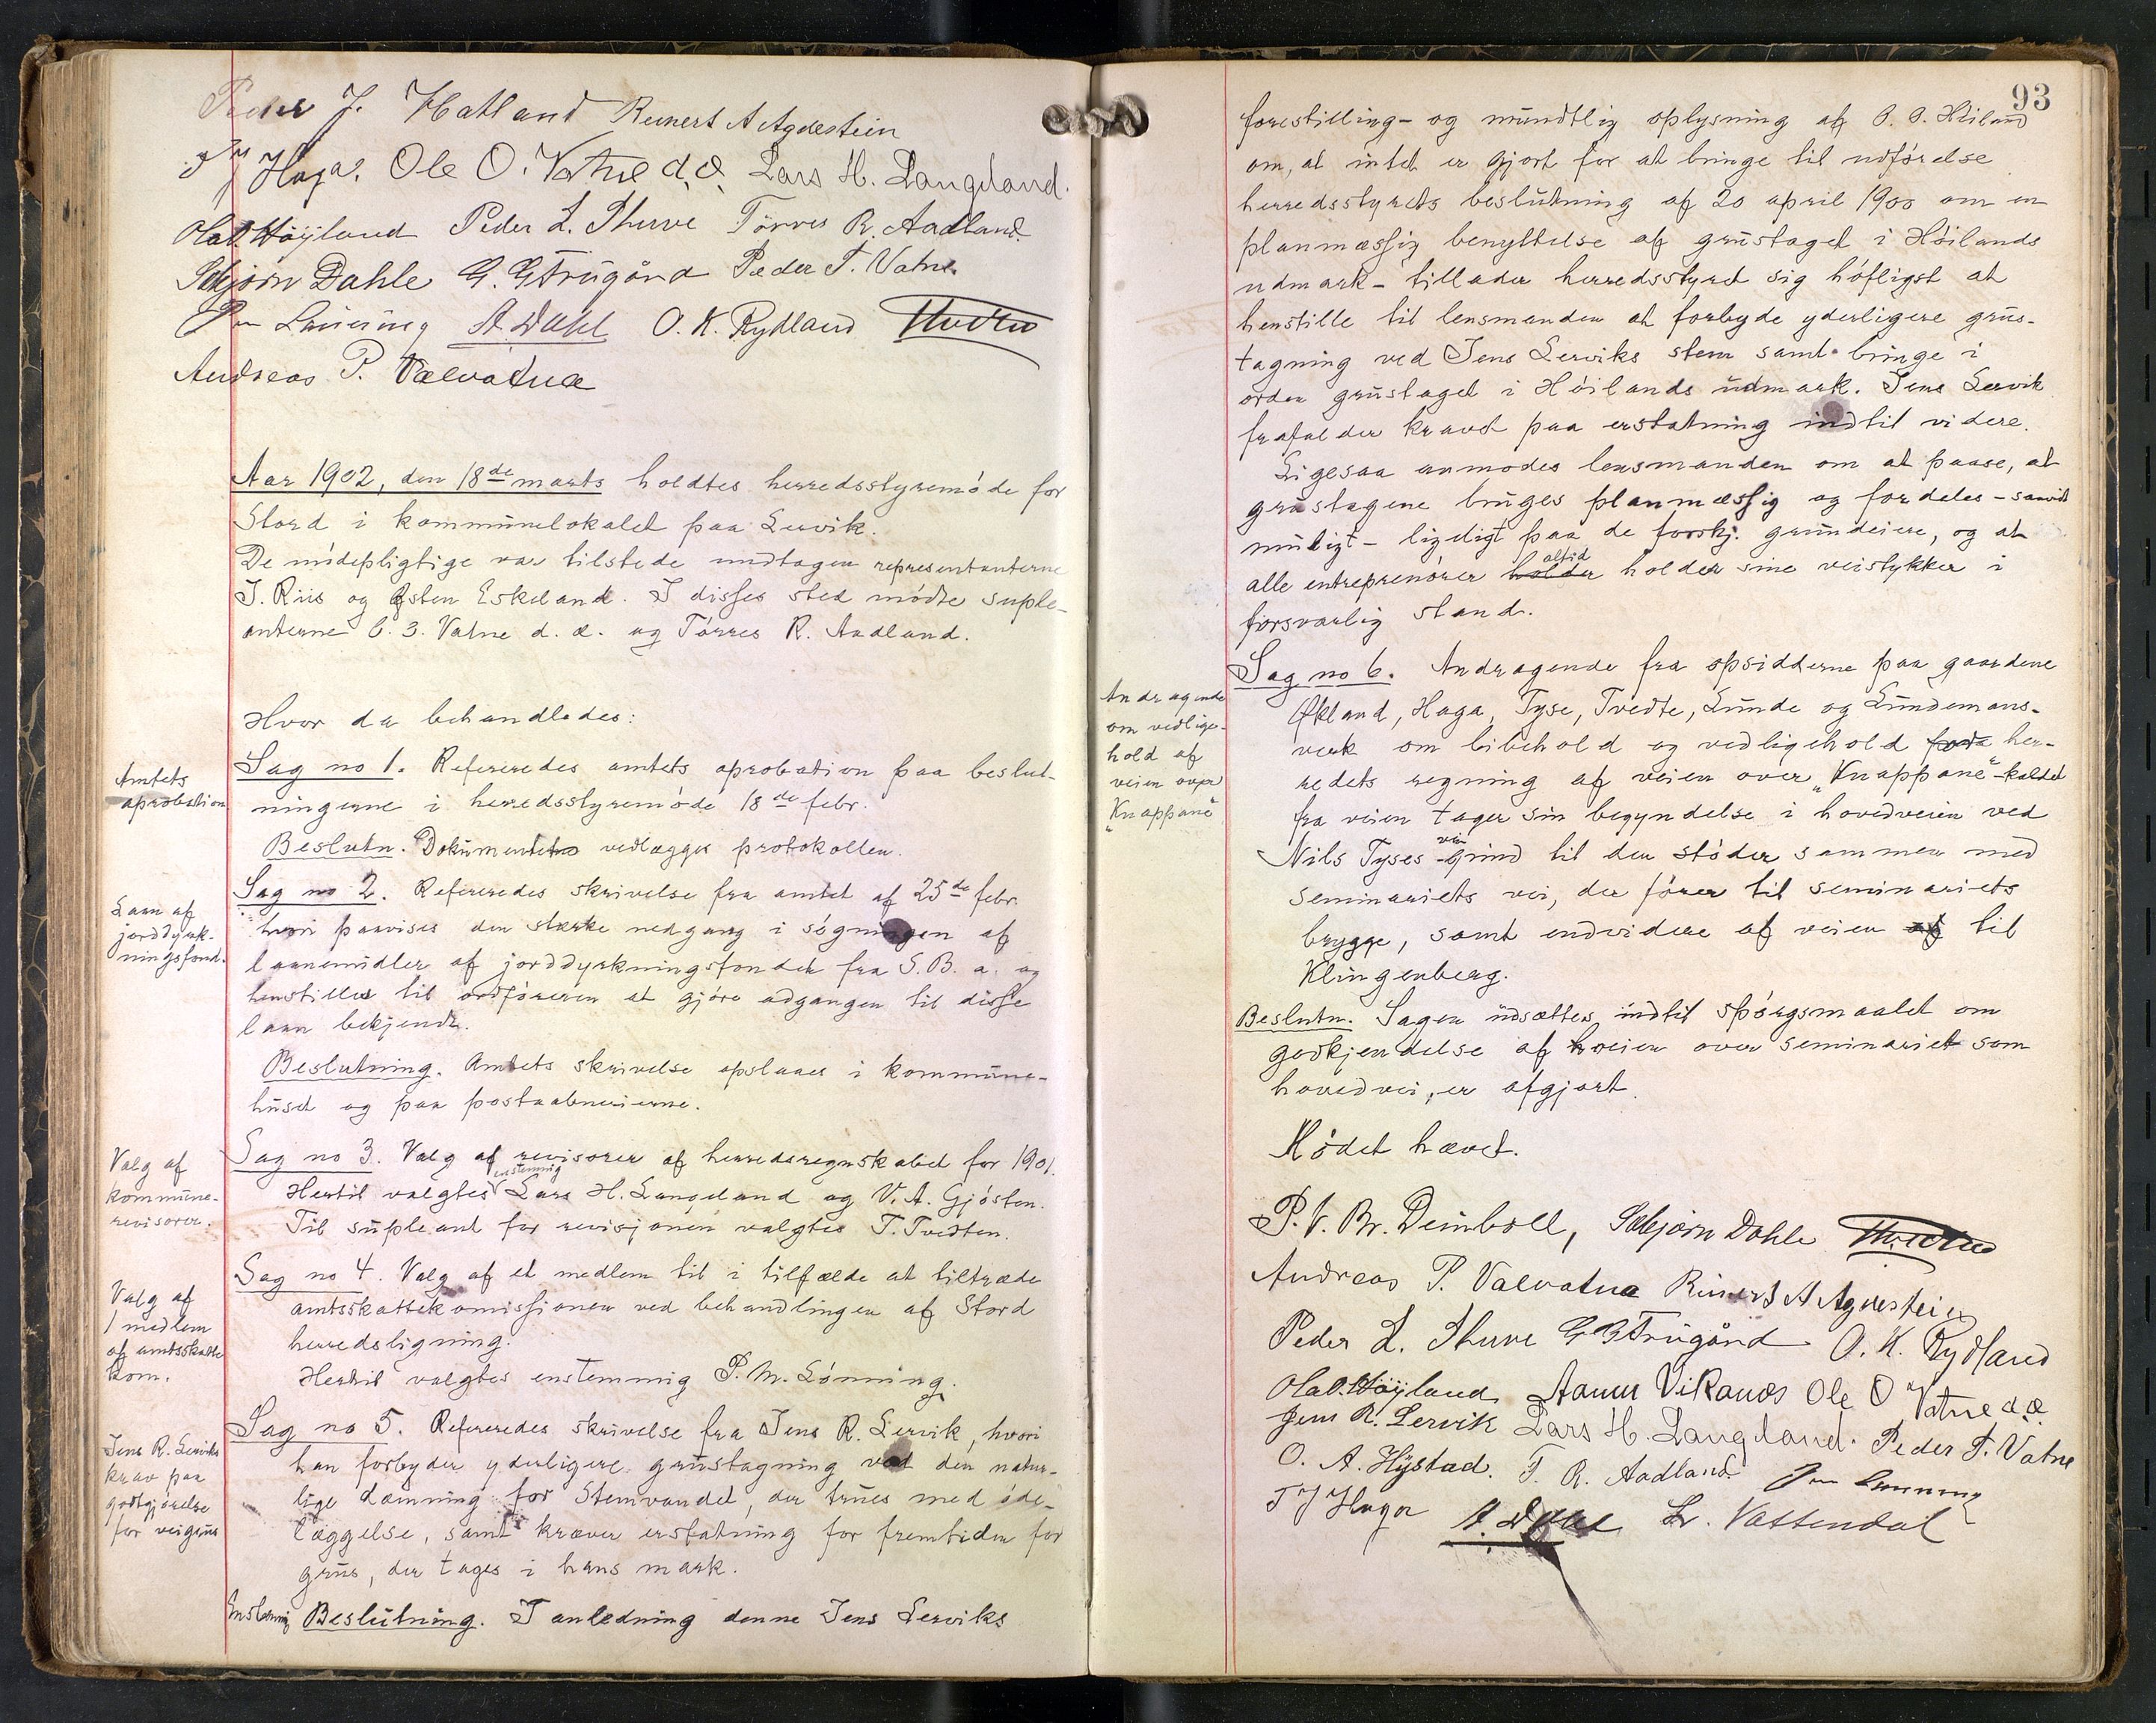 Peder J. Hatland Reinert A Agdestein
Haga. Ole O. Vatne d.æ. Lars H. Langeland.
Ola O. Høyland Peder L. Sture Tørres R. Aadland.
Sebjørn Dahle G. G Frugård Peder T. Vatne
Lønning A. Dahl O. K. Rydland
Andreas P. Valvatnæ
Aar 1902, den 18de marts holdtes herredsstyremøde for
Stord i kommunelokalet paa Lervik.
De mødepligtige var tilstede undtagen representanterne
J. Riis og Østen Eskeland. I disses sted mødte suple-
anterne C. Z. Vatne d. æ. og Tørres R. Aadland.
Hvor da behandledes:
Amtets
aprobation
Sag no 1. Refereredes amtets aprobation paa beslut-
ningerne i herredsstyremøde 18de febr.
Beslutn. Dokumentet vedlægges protokollen.
Laan af
jorddyrk-
ningsfond.
Sag no 2. Refereredes skrivelse fra amtet af 25de febr.
hvori paavises den stærke nedgang i søgningen af
laanemidler af jorddyrkningsfondet fra S. B. a. og
henstilles til ordføreren at gjøre adgangen til disse
laan bekjendt.
Beslutning. Amtets skrivelse opslaaes i kommune-
huset og paa postaabnerierne.
Valg af
kommune-
revisorer.
Sag no 3. Valg af revisorer af herredsregnskabet for 1901.
enstemmig
Hertil valgtes Lars H. Langeland og V. A. Gjøsten.
Til supleant for revisjonen valgtes T. Tvedten.
Valg af
1 medlem
af amtsskatte
kom.
Sag no 4. Valg af et medlem til i tilfælde at tiltræde
amtsskattekomissionen ved behandlingen af Stord
herredsligning.
Hertil valgtes enstemmig P. M. Lønning.
Jens R. Lerviks
krav paa
godtgjørelse
for veigrus
Sag no 5. Refereredes skrivelse fra Jens R. Lervik, hvori
han forbyder yderligere grustagning ved den natur-
lige dæmning for Stemvandet, der trues med øde-
læggelse, samt kræver erstatning for fremtiden for
grus, der tages i hans mark.
Enstemmig Beslutning. I anledning denne Jens Lerviks
93
forestilling- og mundtlig oplysning af O. O. Høiland
om, at intet er gjort for at bringe til udførelse
herredsstyrets beslutning af 20 april 1900 om en
planmæssig benyttelse af grustaget i Høilands
udmark - tillader herredsstyret sig høfligst at
henstille til lensmanden at forbyde yderligere grus-
tagning ved Jens Lerviks stem samt bringe i
orden grustaget i Høilands udmark. Jens Lervik
frafalder kravet paa erstatning indtil videre.
Ligesaa anmodes lensmanden om at paase, at
grustagene bruges planmæssig og fordeles - saavidt
muligt - ligeligt paa de forskj. grundeiere, og at
altid
alle entreprenører holder holder sine veistykker i
forsvarlig stand.
Andragende
om vedlige-
hold af
veien over
"Knappane"
Sag no 6. Andragende fra opsidderne paa gaardene
Økland, Haga, Tyse, Tvedte, Lunde og Lundemans-
verk om bibehold og vedligehold for her-
redets regning af veien over "Knappane" - kaldet
fra veien tager sin begyndelse i hovedveien ved
vei
Nils Tyses -grind til den støder sammen med
seminariets vei, der fører til seminariets
brygge, samt endvidere af veien af til
Klingenberg.
Beslutn. Sagen udsættes indtil spørgsmaalet om
godkjendelse af veien over seminariet som
hovedvei, er afgjort.
Mødet hævet.
P. V. Br. Deinboll, Sebjørn Dahle
Andreas P. Valvatnæ Reinert A Agdestein
Peder L. Sture G G Frugård O. K. Rydland
Ola O. Høyland Aamu Vikanes Ole O Vatne d.æ.
Jens R. Lervik Lars H. Langeland. Peder T. Vatne
O. A. Hystad. T. R. Aadland. Lønning
T J Haga A. Dahl L. Vattendal